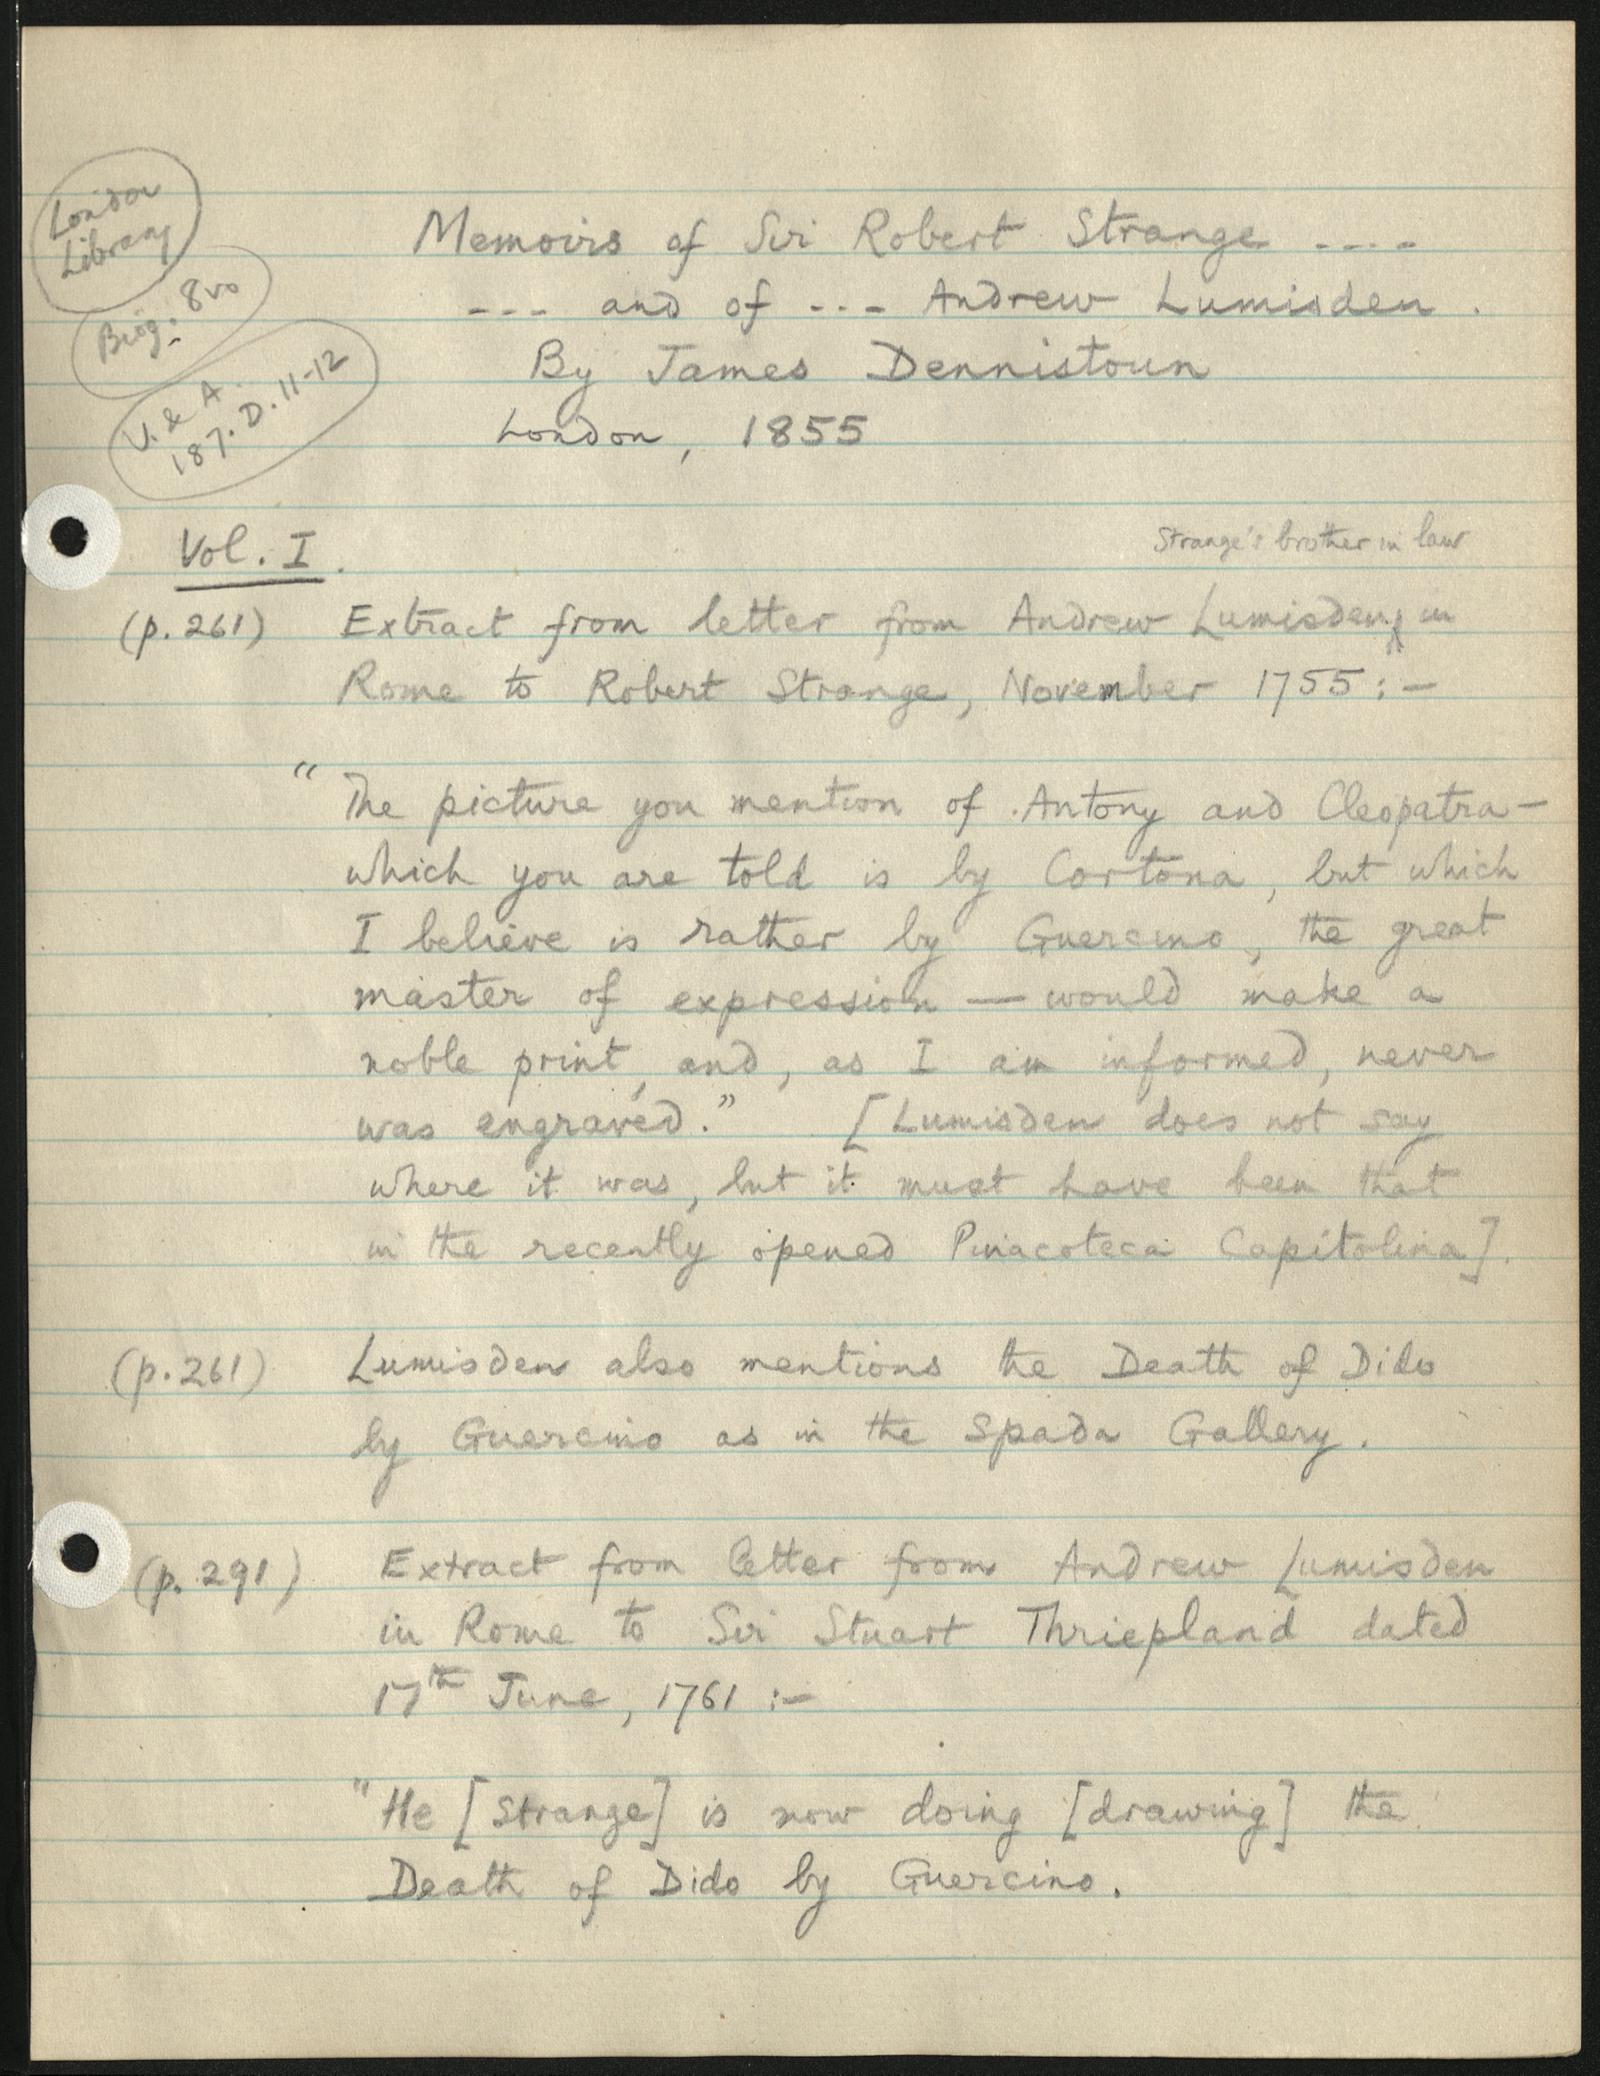 London
Library
Biog. 8vo
V. & A.
187. D. 11-12
Memoirs of Sir Robert Strange ----
--- and of --- Andrew Lumisden.
By James Dennistoun
London, 1855
Vol. I.
Strange's brother in law
(p. 261) Extract from letter from Andrew Lumisden, in
Rome to Robert Strange, November 1755:—
"The picture you mention of Antony and Cleopatra —
which you are told is by Cortona, but which
I believe is rather by Guercino, the great
master of expression — would make a
noble print, and, as I am informed, never
was engraved." [Lumisden does not say
where it was, but it must have been that
in the recently opened Pinacoteca Capitolina].
(p. 261) Lumisden also mentions the Death of Dido
by Guercino as in the Spada Gallery.
(p. 291) Extract from letter from Andrew Lumisden
in Rome to Sir Stuart Thriepland dated
17th June, 1761 :—
"He [Strange] is now doing [drawing] the
Death of Dido by Guercino.